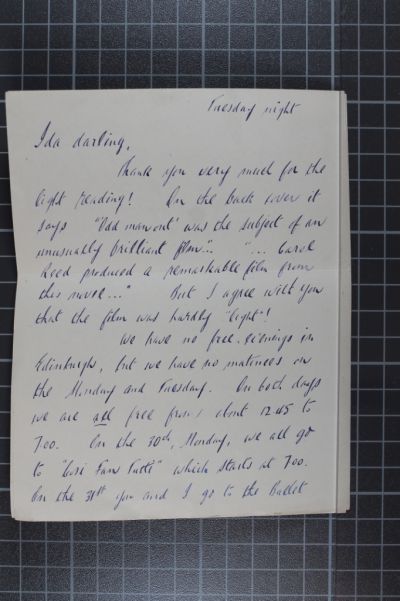 Tuesday night
Ida darling,
Thank you very much for the
light reading! On the back cover it
says "Odd man out' was the subject of an
unusually brilliant film". "... Carol
Reed produced a remarkable film from
this novel..." But I agree with you
that the film was hardly "light"!
We have no free evenings in
Edinburgh, but we have no matinees on
the Monday and Tuesday. On both days
we are all free from about 12.45 to
7.00. On the 30th, Monday, we all go
to "Cosi Fan Tutti" which starts at 7.00.
On the 31st you and I go to the Ballet